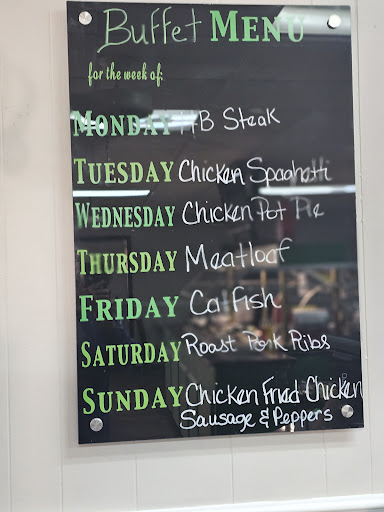 Buffet MENU
for the week of:
MONDAY HB Steak
TUESDAY Chicken Spaghetti
WEDNESDAY Chicken Pot Pie
THURSDAY Meatloaf
FRIDAY Catfish
SATURDAY Roast Pork Ribs
SUNDAY Chicken Fried Chicken
Sausage & Peppers